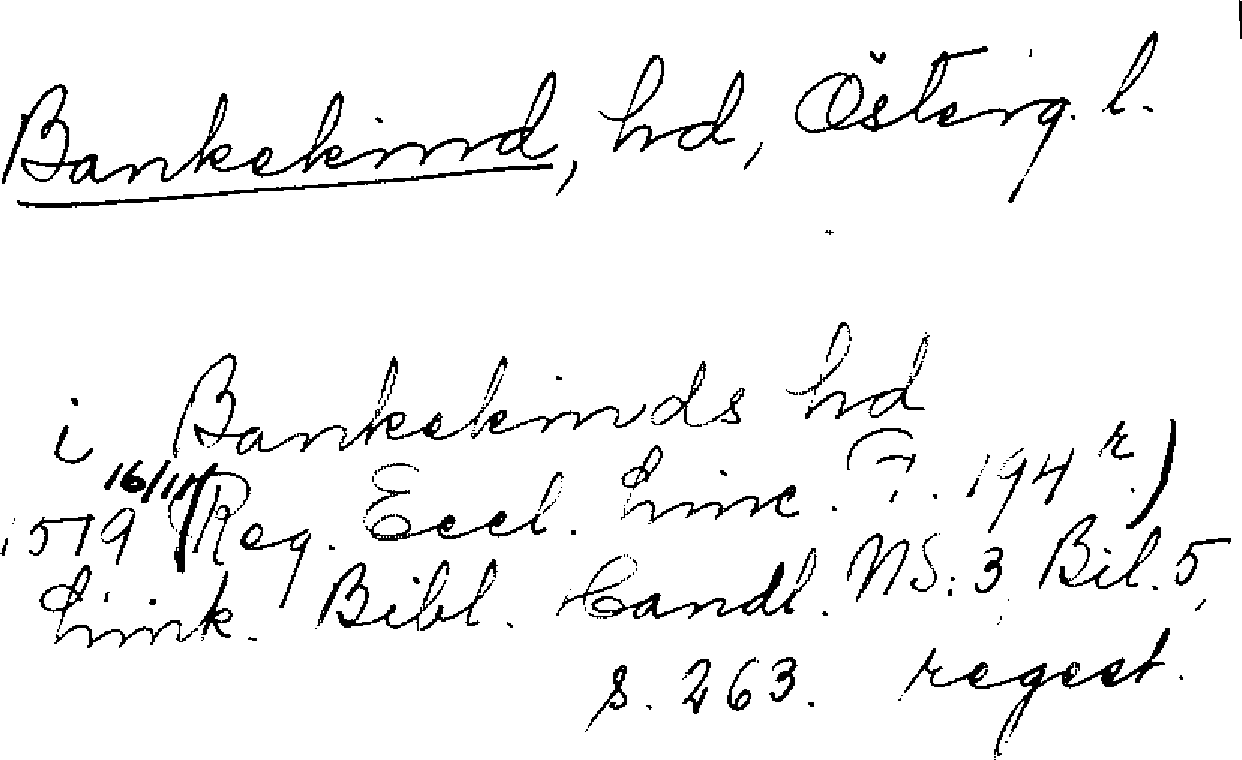 Bankekind, hd, Österg. l.
i Bankekinds hd
16/11
1519 (Reg. Eccl. Linc. F. 194 r.)
Link. Bibl. Handl. NS: 3, Bil. 5,
s. 263. regest.